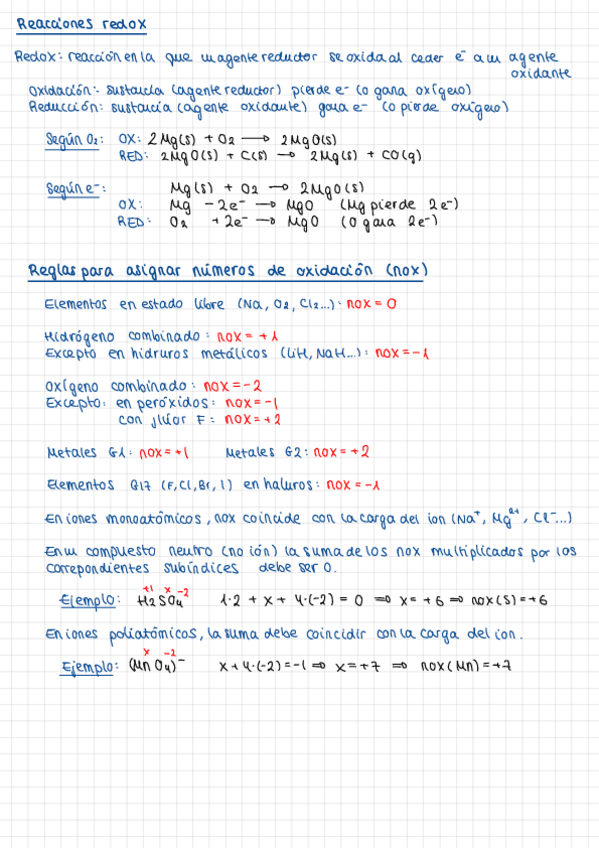 Reacciones redox
Redox: reacción en la que un agente reductor se oxida al ceder e⁻ a un agente
oxidante
Oxidación: sustancia (agente reductor) pierde e⁻ (o gana oxígeno)
Reducción: sustancia (agente oxidante) gana e⁻ (o pierde oxígeno)
Según O₂: OX: 2Mg(s) + O₂ → 2MgO(s)
RED: 2MgO(s) + C(s) → 2Mg(s) + CO(g)
Según e⁻: Mg(s) + O₂ → 2MgO(s)
OX: Mg - 2e⁻ → MgO (Mg pierde 2e⁻)
RED: O₂ + 2e⁻ → MgO (O gana 2e⁻)
Reglas para asignar números de oxidación (nox)
Elementos en estado libre (Na, O₂, Cl₂...): nox = 0
Hidrógeno combinado: nox = +1
Excepto en hidruros metálicos (LiH, NaH...): nox = -1
Oxígeno combinado: nox = -2
Excepto: en peróxidos: nox = -1
con flúor F: nox = +2
Metales G1: nox = +1 Metales G2: nox = +2
Elementos G17 (F, Cl, Br, I) en haluros: nox = -1
En iones monoatómicos, nox coincide con la carga del ion (Na⁺, Mg²⁺, Cl⁻...)
En un compuesto neutro (no ión) la suma de los nox multiplicados por los
correpondientes subíndices debe ser 0.
+1 x -2
Ejemplo: H₂SO₄ 1·2 + x + 4·(-2) = 0 ⇒ x = +6 ⇒ nox(S) = +6
En iones poliatómicos, la suma debe coincidir con la carga del ion.
x -2
Ejemplo: (MnO₄)⁻ x + 4·(-2) = -1 ⇒ x = +7 ⇒ nox(Mn) = +7